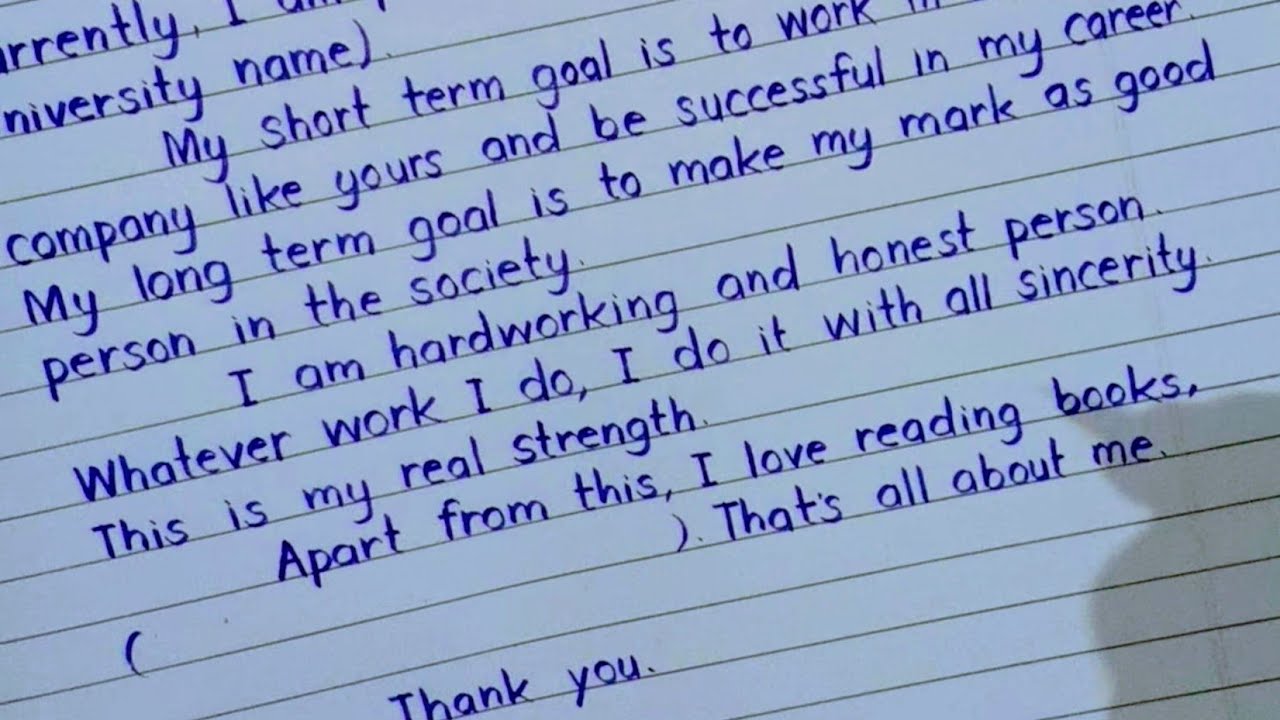 urrently, I am
niversity name).
My short term goal is to work in
company like yours and be successful in my career.
My long term goal is to make my mark as good
person in the society.
I am hardworking and honest person.
Whatever work I do, I do it with all sincerity.
This is my real strength.
Apart from this, I love reading books,
( ). That's all about me.
Thank you.